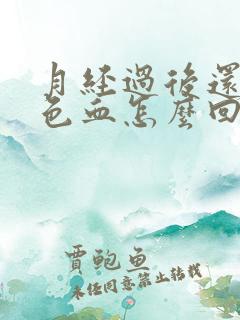 月經過後還
色血怎麼回
賈鮑魚
未经同意禁止转载